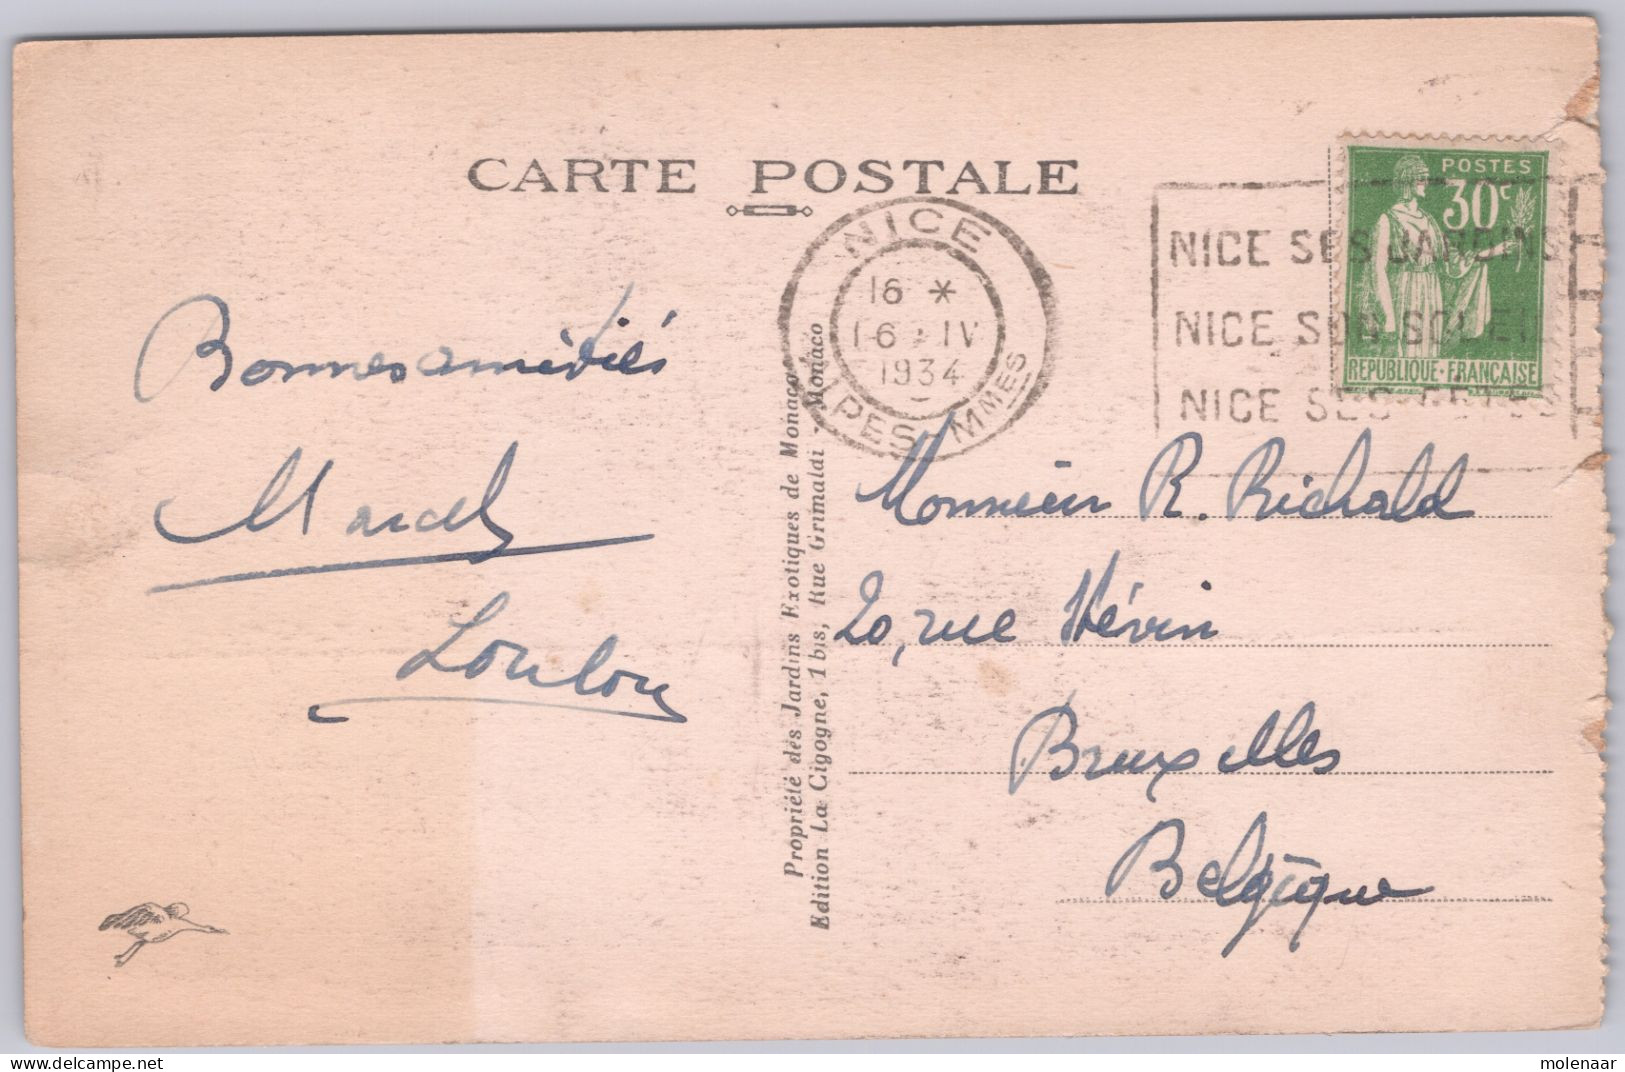 CARTE POSTALE
NICE
16 *
16 IV
1934
ALPES-MMES
NICE SES JARDINS
NICE SON SOLEIL
NICE SES FÊTES
POSTES
30c
REPUBLIQUE·FRANÇAISE
Bonnes amitiés
Marcel
Loulou
Propriété des Jardins Exotiques de Monaco
Edition La Cigogne, 1 bis, Rue Grimaldi - Monaco
Monsieur R. Richald
20, rue Hévin
Bruxelles
Belgique
delcampe.net
molenaar